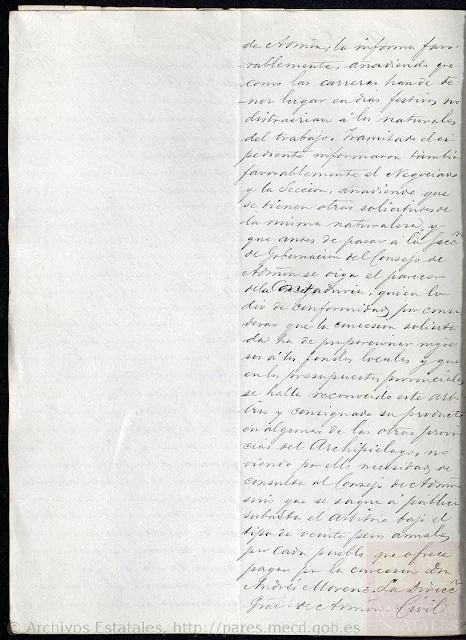 de Admón, la informa favo-
rablemente, añadiendo que
como las carreras han de te-
ner lugar en dias festivos no
distraerian á los naturales
del trabajo. Tramitado el ex-
pediente informaron tambien
favorablemente el Negociado
y la Sección, añadiendo que
se tienen otras solicitudes de
la misma naturaleza, y
que antes de pasar á la Secn
de Gobernacion del Consejo de
Admón se oiga el parecer
de la Contaduria, quien la
dió de conformidad, por consi-
derar que la concesion solicita-
da ha de proporcionar ingre-
sos á los fondos locales y que
en los presupuestos provinciales
se halla reconocido este arbi-
trio y consignado su producto
en algunas de las otras provin-
cias del Archipielago, no
viendo por ello necesidad de
consulta al Consejo de Admón
sino que se saque á publica
subasta el arbitrio bajo el
tipo de veinte pesos anuales
por cada pueblo que ofrece
pagar por la concesion Don
Andrés Moreno. La Direccn
Gral. de Admón Civil
© Archivos Estatales, http://pares.mecd.gob.es